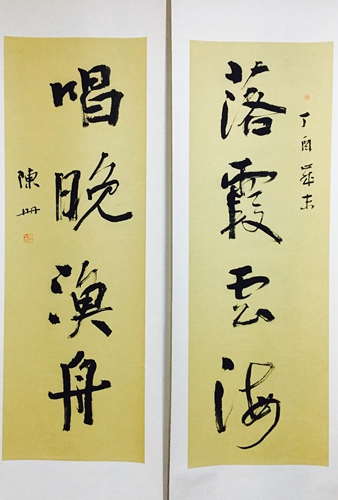 落霞雲海
丁酉歲末
唱晚漁舟
陳冊